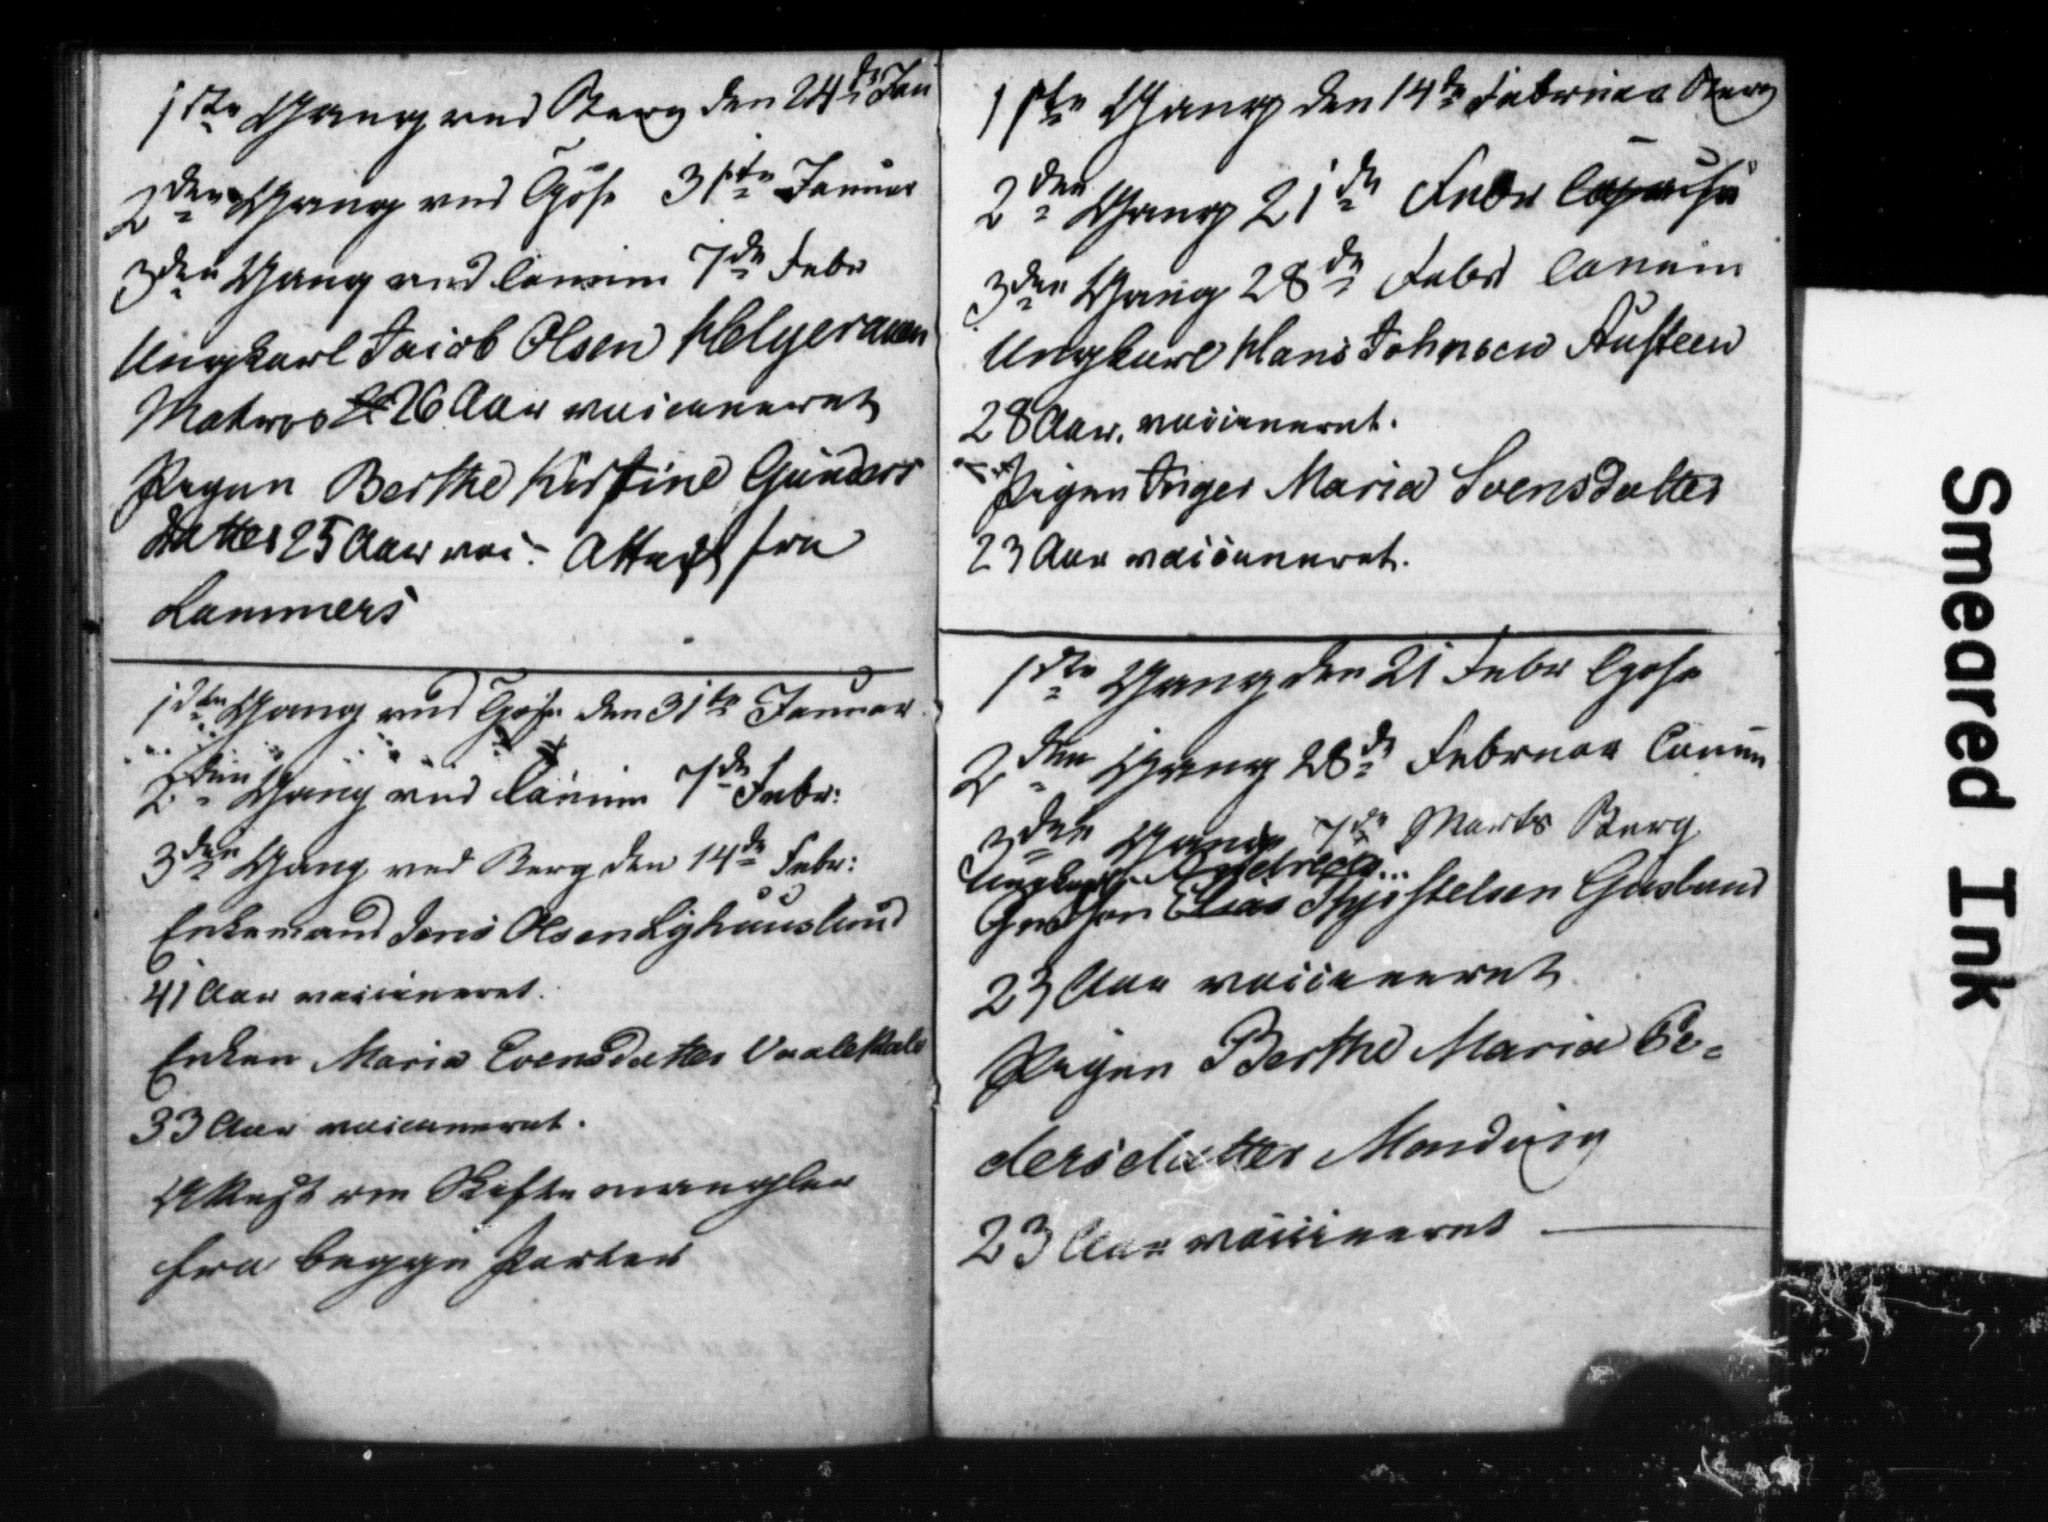 1ste Gang ved Berg den 24de Jan
2den Gang ved Gose 31te Januar
3den Gang ved Canum 7de Febr
Ungkarl Jacob Olsen Helgeraaen
Matros 26 Aar vaccineret
Pigen Berthe Kirstine Gunders
datter 25 Aar vac: Attest fra
Lammers
1ste Gang ved den 31te Januar
2den Gang ved Canum 7de Febr:
3die Gang ved Berg den 14de Febr:
Enkemand Jens Olsen
41 Aar vaccineret.
Enken Maria Evensdatter
33 Aar vaccineret.
Attest om Skifte mangler
fra begge Parter
1ste Gang den 14de Februar Berg
2den Gang 21de Febr
3den Gang 28de Febr Canum
Ungkarl Hans Johnsen Austeen
28 Aar. vaccineret.
Pigen Inger Maria Svensdatter
23 Aar vaccineret.
1ste Gang den 21 Febr
2den Gang 28de Februar Canum
3den Gang 7de Marts Berg
Ungkarl Andreas
Elias Gusland
23 Aar vaccineret
Pigen Berthe Maria Pe-
dersdatter
23 Aar vaccineret
Smeared Ink